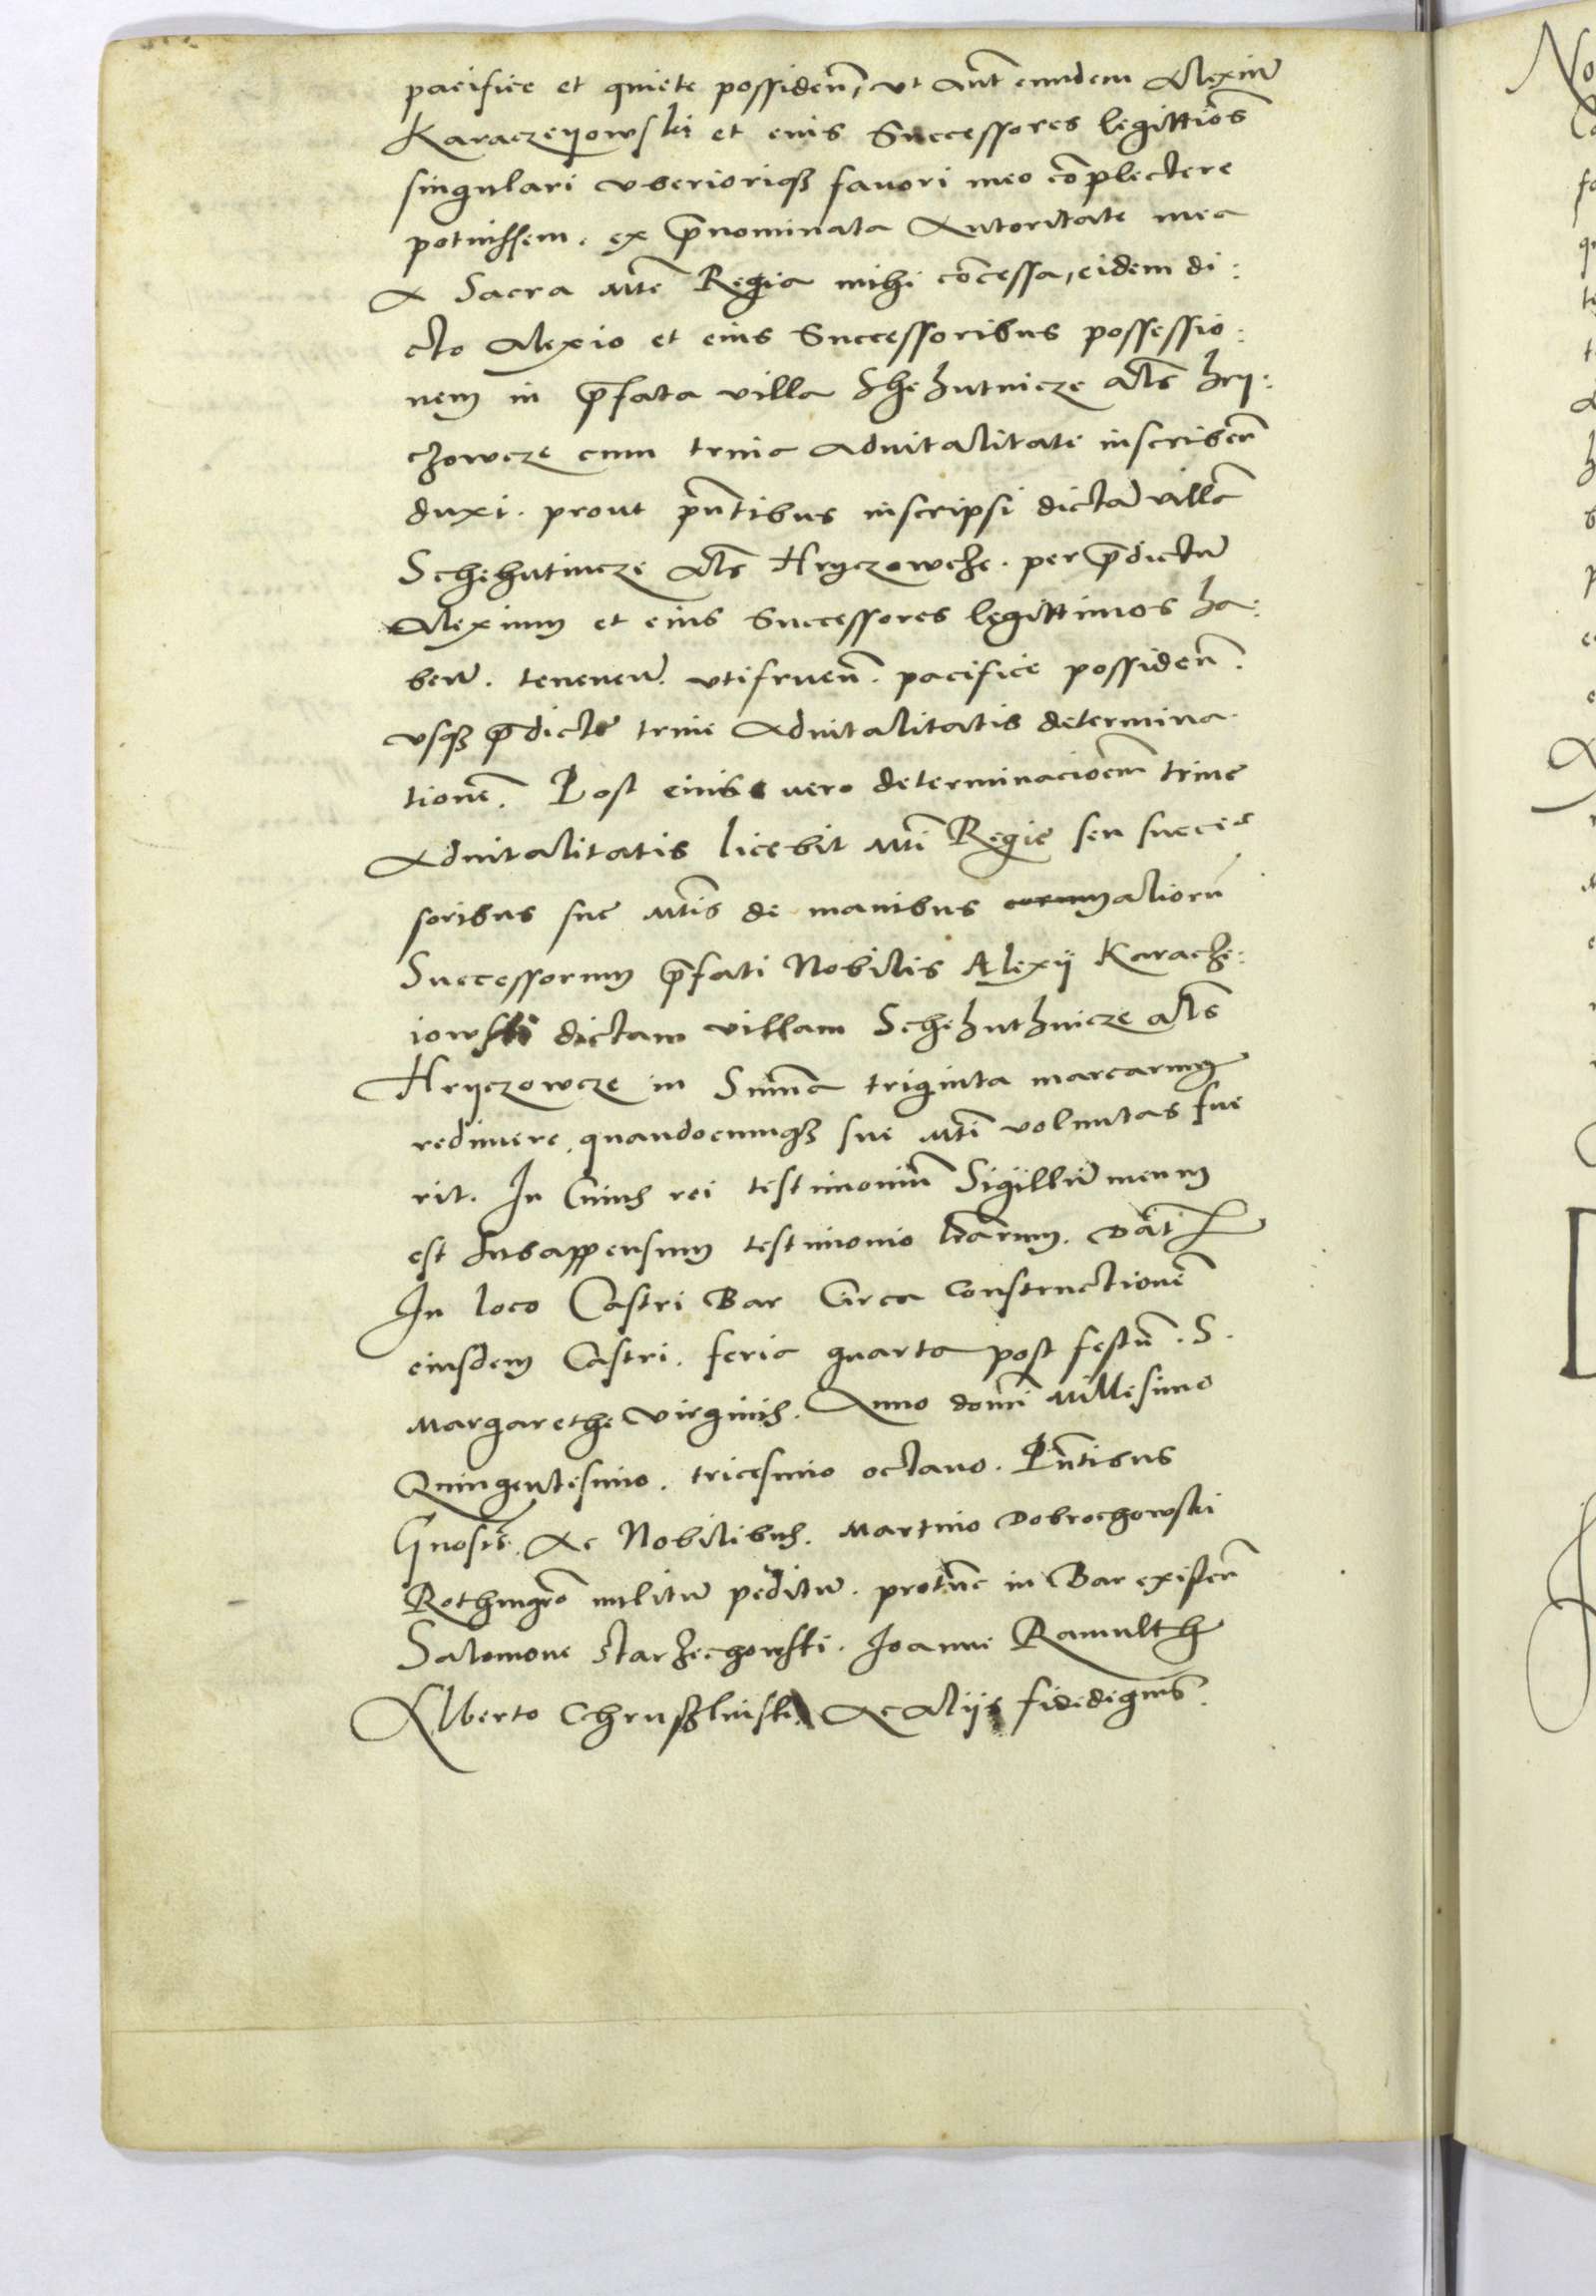 pacifice et quiete possidenͫ, vt aut̃ eundem Alexiũ
Karaczeijowski et eius Successores legittiõs
singulari vberioriqꝫ fauori meo cõplectere
potuissem. ex p̃nominata Autoritate mea
A Sacra Mte Regia mihi cõcessa, eidem di:
cto Alexio et eius Successoribus possessio:
nem in p̃fata villa Shehutnicze als̃ hry:
czowcze cum trina aduitalitate inscribeñ
duxi. prout pñtibus inscripsi dictã villã
Schehutincze als̃ Hryczowcze. per p̃dictũ
Alexium et eius Successores legittimos ha:
beñ. teneneñ. vtifrueñ. pacifice possideñ.
vsqꝫ p̃dicte trine Aduitalitatis determina
tionẽ. Post eius vero determinacioẽm trine
Aduitalitatis licebit Mti Regie seu succes
soribus sue Mtis de manibus aliorũ
Successorum p̃fati Nobilis Alexij Karacze:
iowski dictam villam Schehuthnicze als̃
Hryczowcze in Summa triginta marcarum
redimere, quandocumqꝫ sue Mti voluntas fue
rit. In Cuius rei testimoniũ Sigillũ meum
est subappensum testimonio lrãrum. Dat̃
In loco Castri Bar Circa Constructionẽ
eiusdem Castri. feria quarta post festũ. S.
Margarethe virginis. Anno domi Millesimo
Quingentesimo. tricesimo octauo. Pñtibus
Gnosis. Ac Nobilibus. Martino Dobrochowski
Rothmgrõ militũ peditũ. protũc in Bar existeñ
Salomone Starzechowski. Joanne Ramulth
Alberto Chrusßlinski Ac Alijs fidedignis.